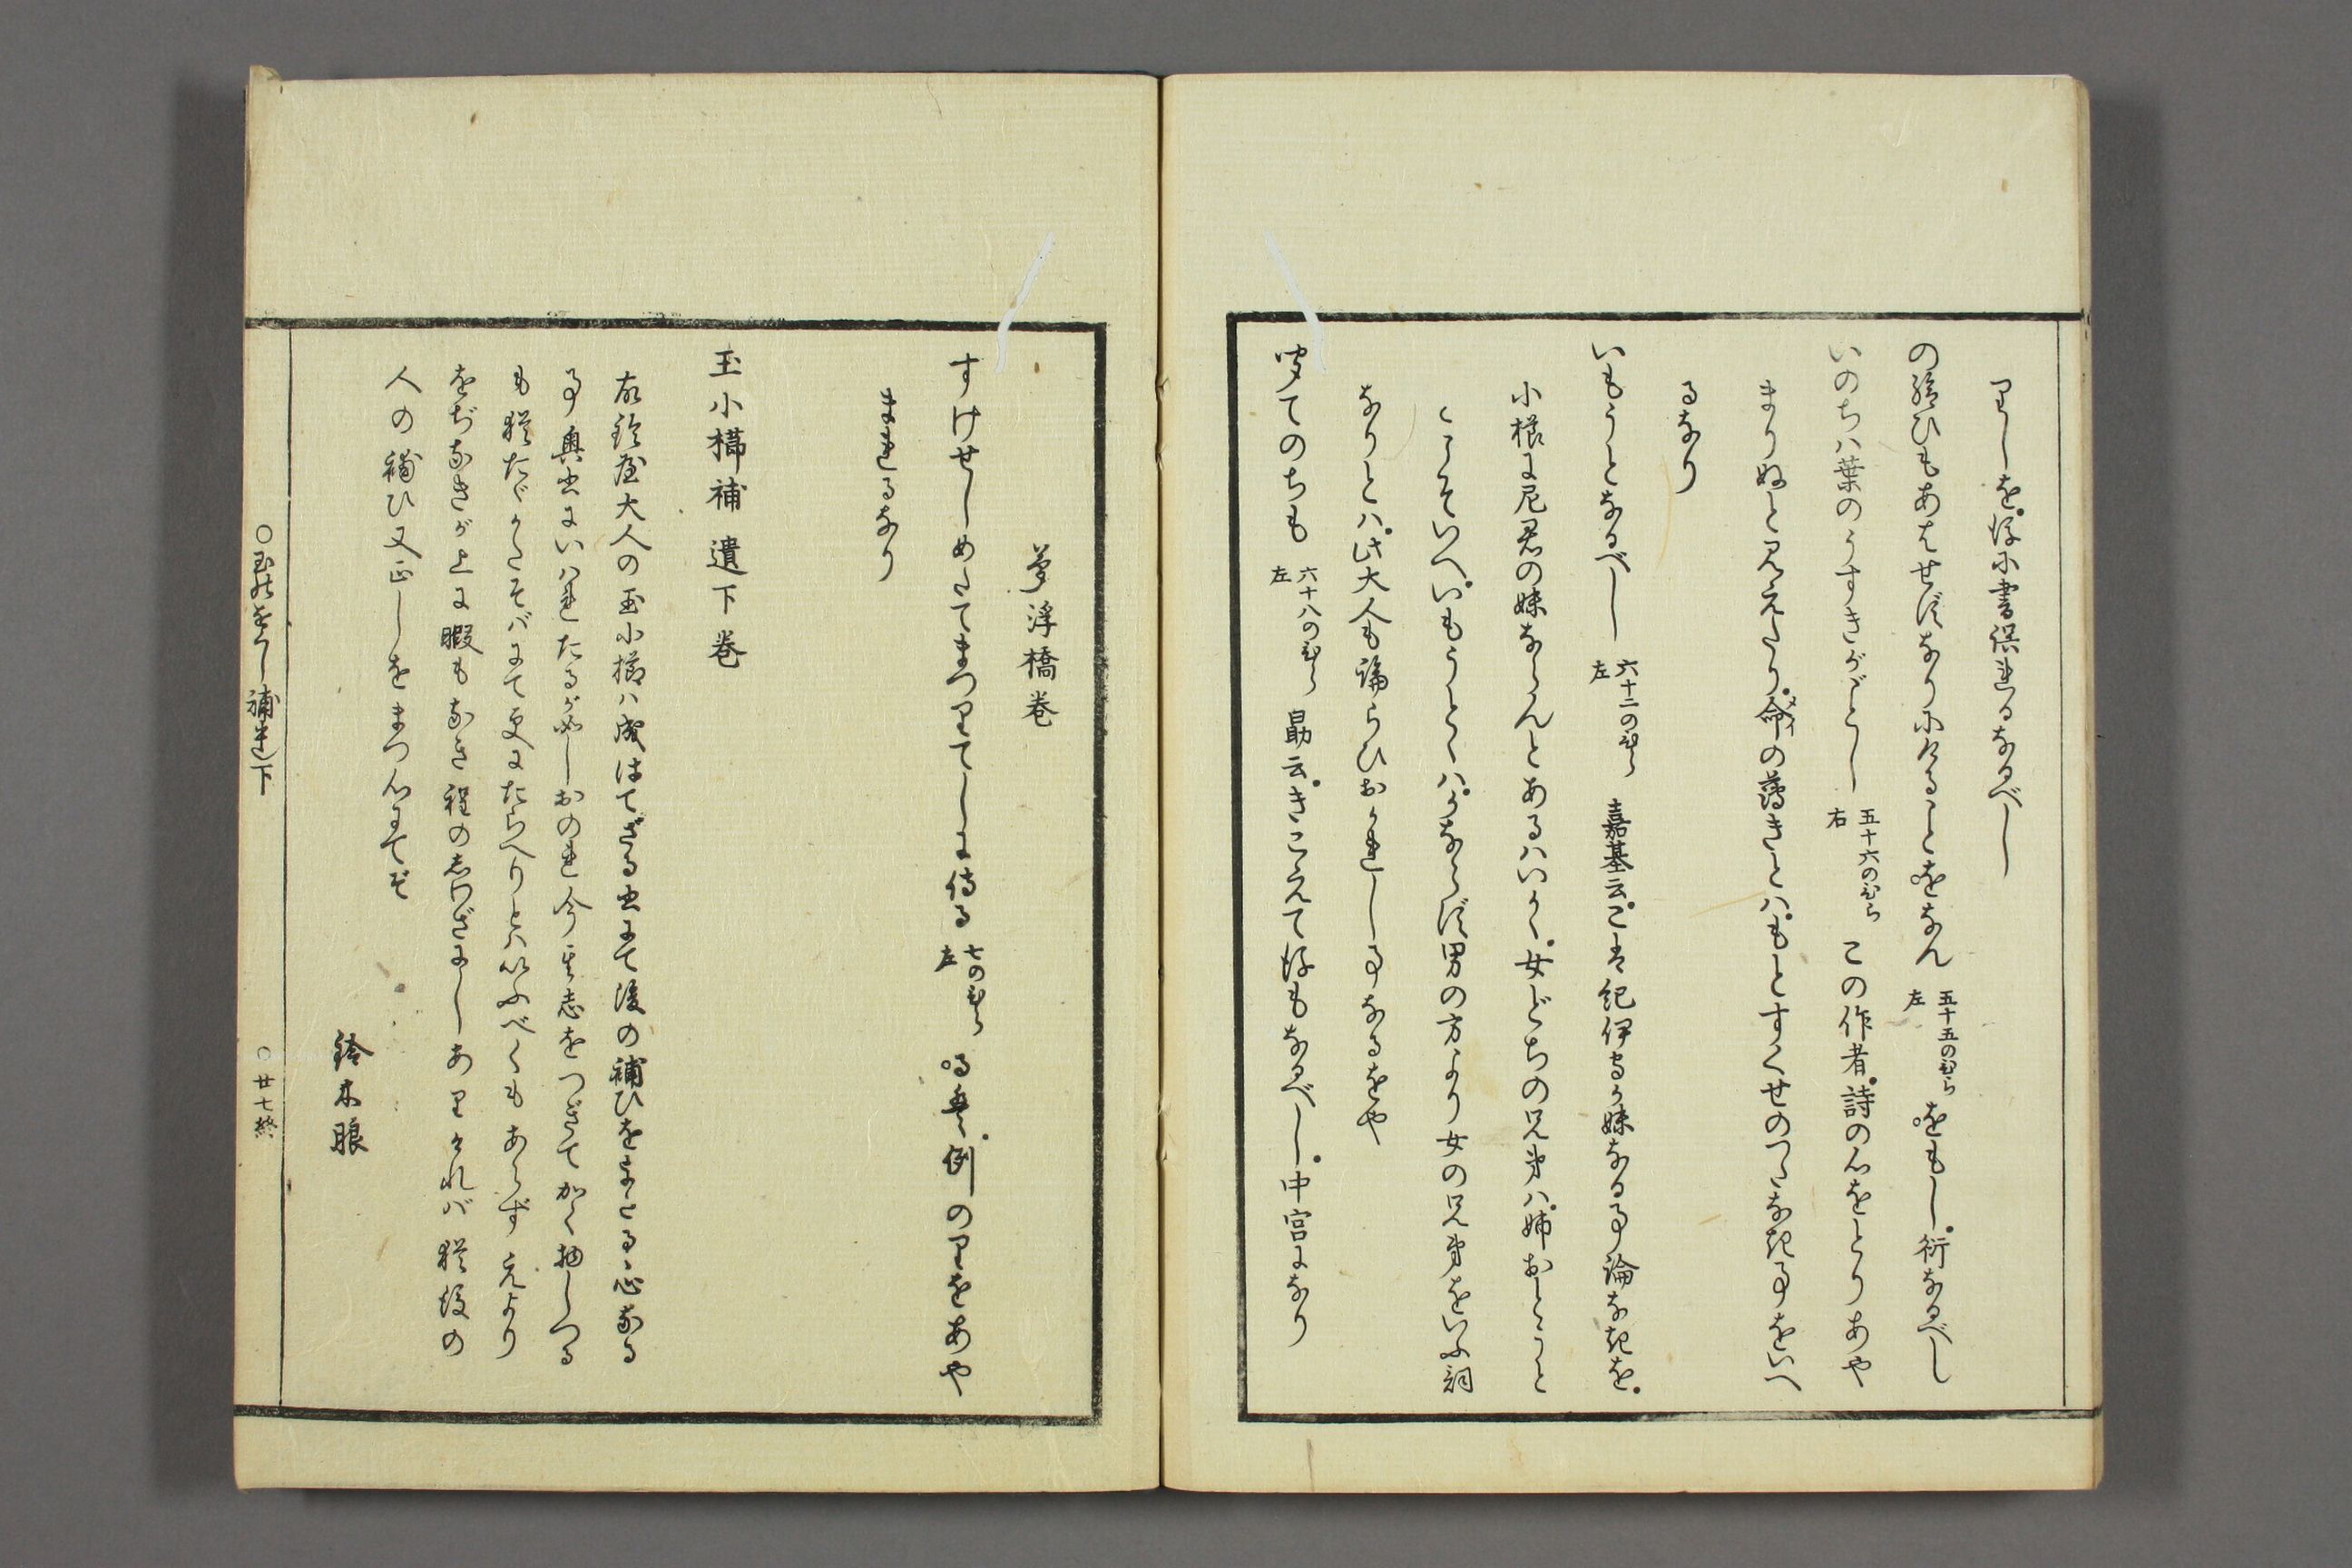 りしを後に書誤れるなるべし
の給ひもあはせずなりにけることをなん 五十五のひら左 をもし衍なるべし
いのちハ葉のうすきがごとし 五十六のひら右 この作者詩の心をとりあや
まりぬと見えたり命メイの薄きとハもとすくせのつたなき事をいへ
るなり
いもうとなるべし 六十二のひら左 嘉基云こは紀伊守が妹なる事論なきを
小櫛に尼君の妹ならんとあるハいかゝ女どちの兄弟ハ姉おとうと
とこそいへいもうとゝハかならず男の方より女の兄弟をいふ詞
なりとハ此大人も論らひおかれし事なるをや
聞てのちも 六十八のひら左 勗云きこえて後もなるべし中宮になり
夢浮橋巻
すけせしめたてまつりてしに侍る 七のひら左 るハ例のりをあや
まれるなり
玉小櫛補遺下巻
故鈴屋大人の玉小櫛ハ成はてざる書にて後の補ひをまたるゝ心なる
事奥書にいハれたるが如しおのれ今其志をつぎてかく物しつる
も猶たゞかたそバにて更にたらへりとハいふべくもあらず元より
をぢなきが上に暇もなき程のしわざにしあリけれバ猶後の
人の補ひ又正しをまつ心にてぞ
鈴木朖
○玉のをぐし補遺下 ○廿七終